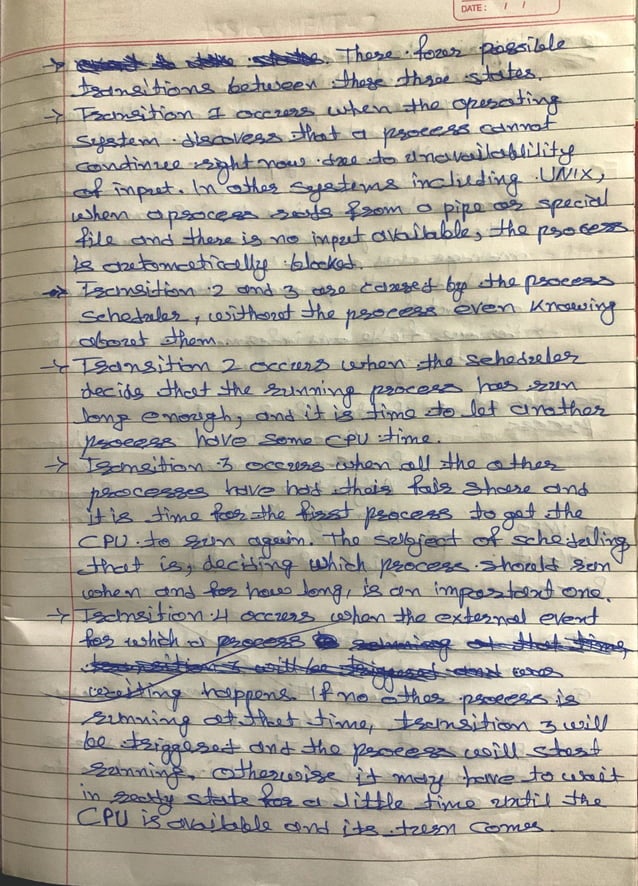 DATE: / /
→ There four possible
transitions between these three states.
→ Transition 1 occurs when the operating
system discovers that a process cannot
continue right now due to unavailablility
of input. In other systems including UNIX,
when a process reads from a pipe or special
file and there is no input available, the process
is automatically blocked.
→ Transition 2 and 3 are caused by the process
scheduler, without the process even knowing
about them.
→ Transition 2 occurs when the scheduler
decids that the running process has run
long enough, and it is time to let another
process have some CPU time.
→ Transition 3 occurs when all the other
processes have had their fair share and
it is time for the first process to get the
CPU to run again. The subject of scheduling
that is, deciding which process should run
when and for how long, is an important one.
→ Transition 4 occurs when the external event
for which a process
was
waiting happens. If no other process is
running at that time, transition 3 will
be triggered and the process will start
running. Otherwise it may have to wait
in ready state for a little time until the
CPU is available and its turn comes.